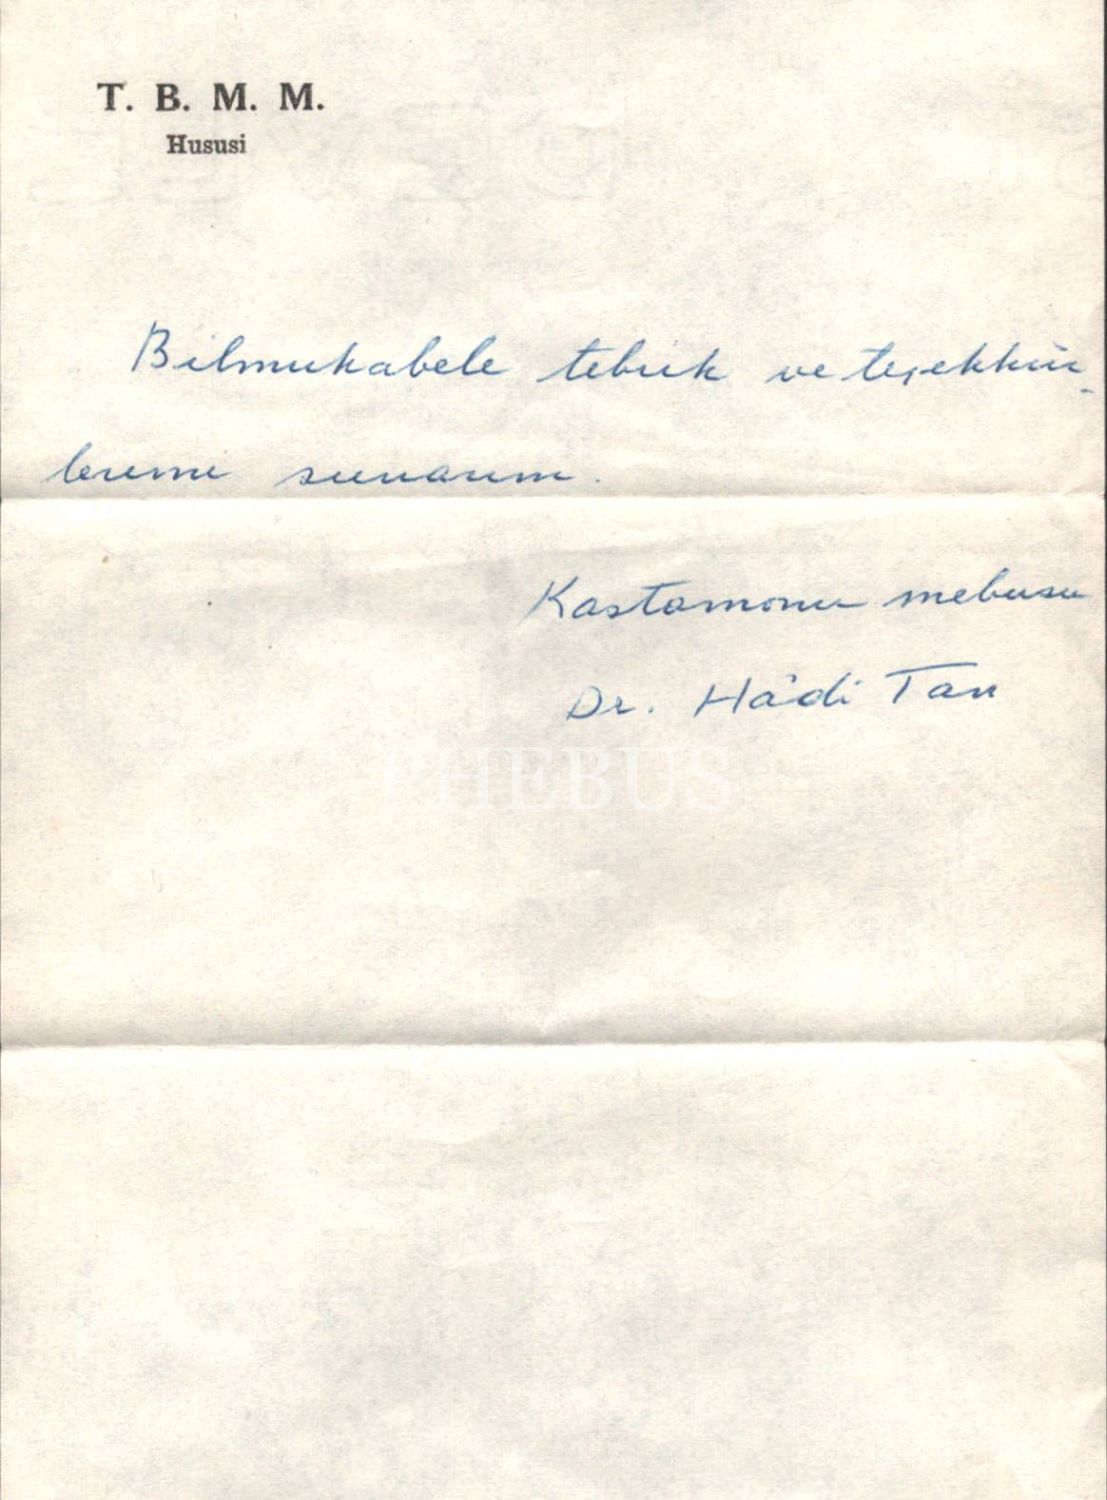 T. B. M. M.
Hususi
Bilmukabele tebrik ve teşekkür-
lerimi sunarım.
Kastamonu mebusu
Dr. Hâdi Tan
PHEBUS